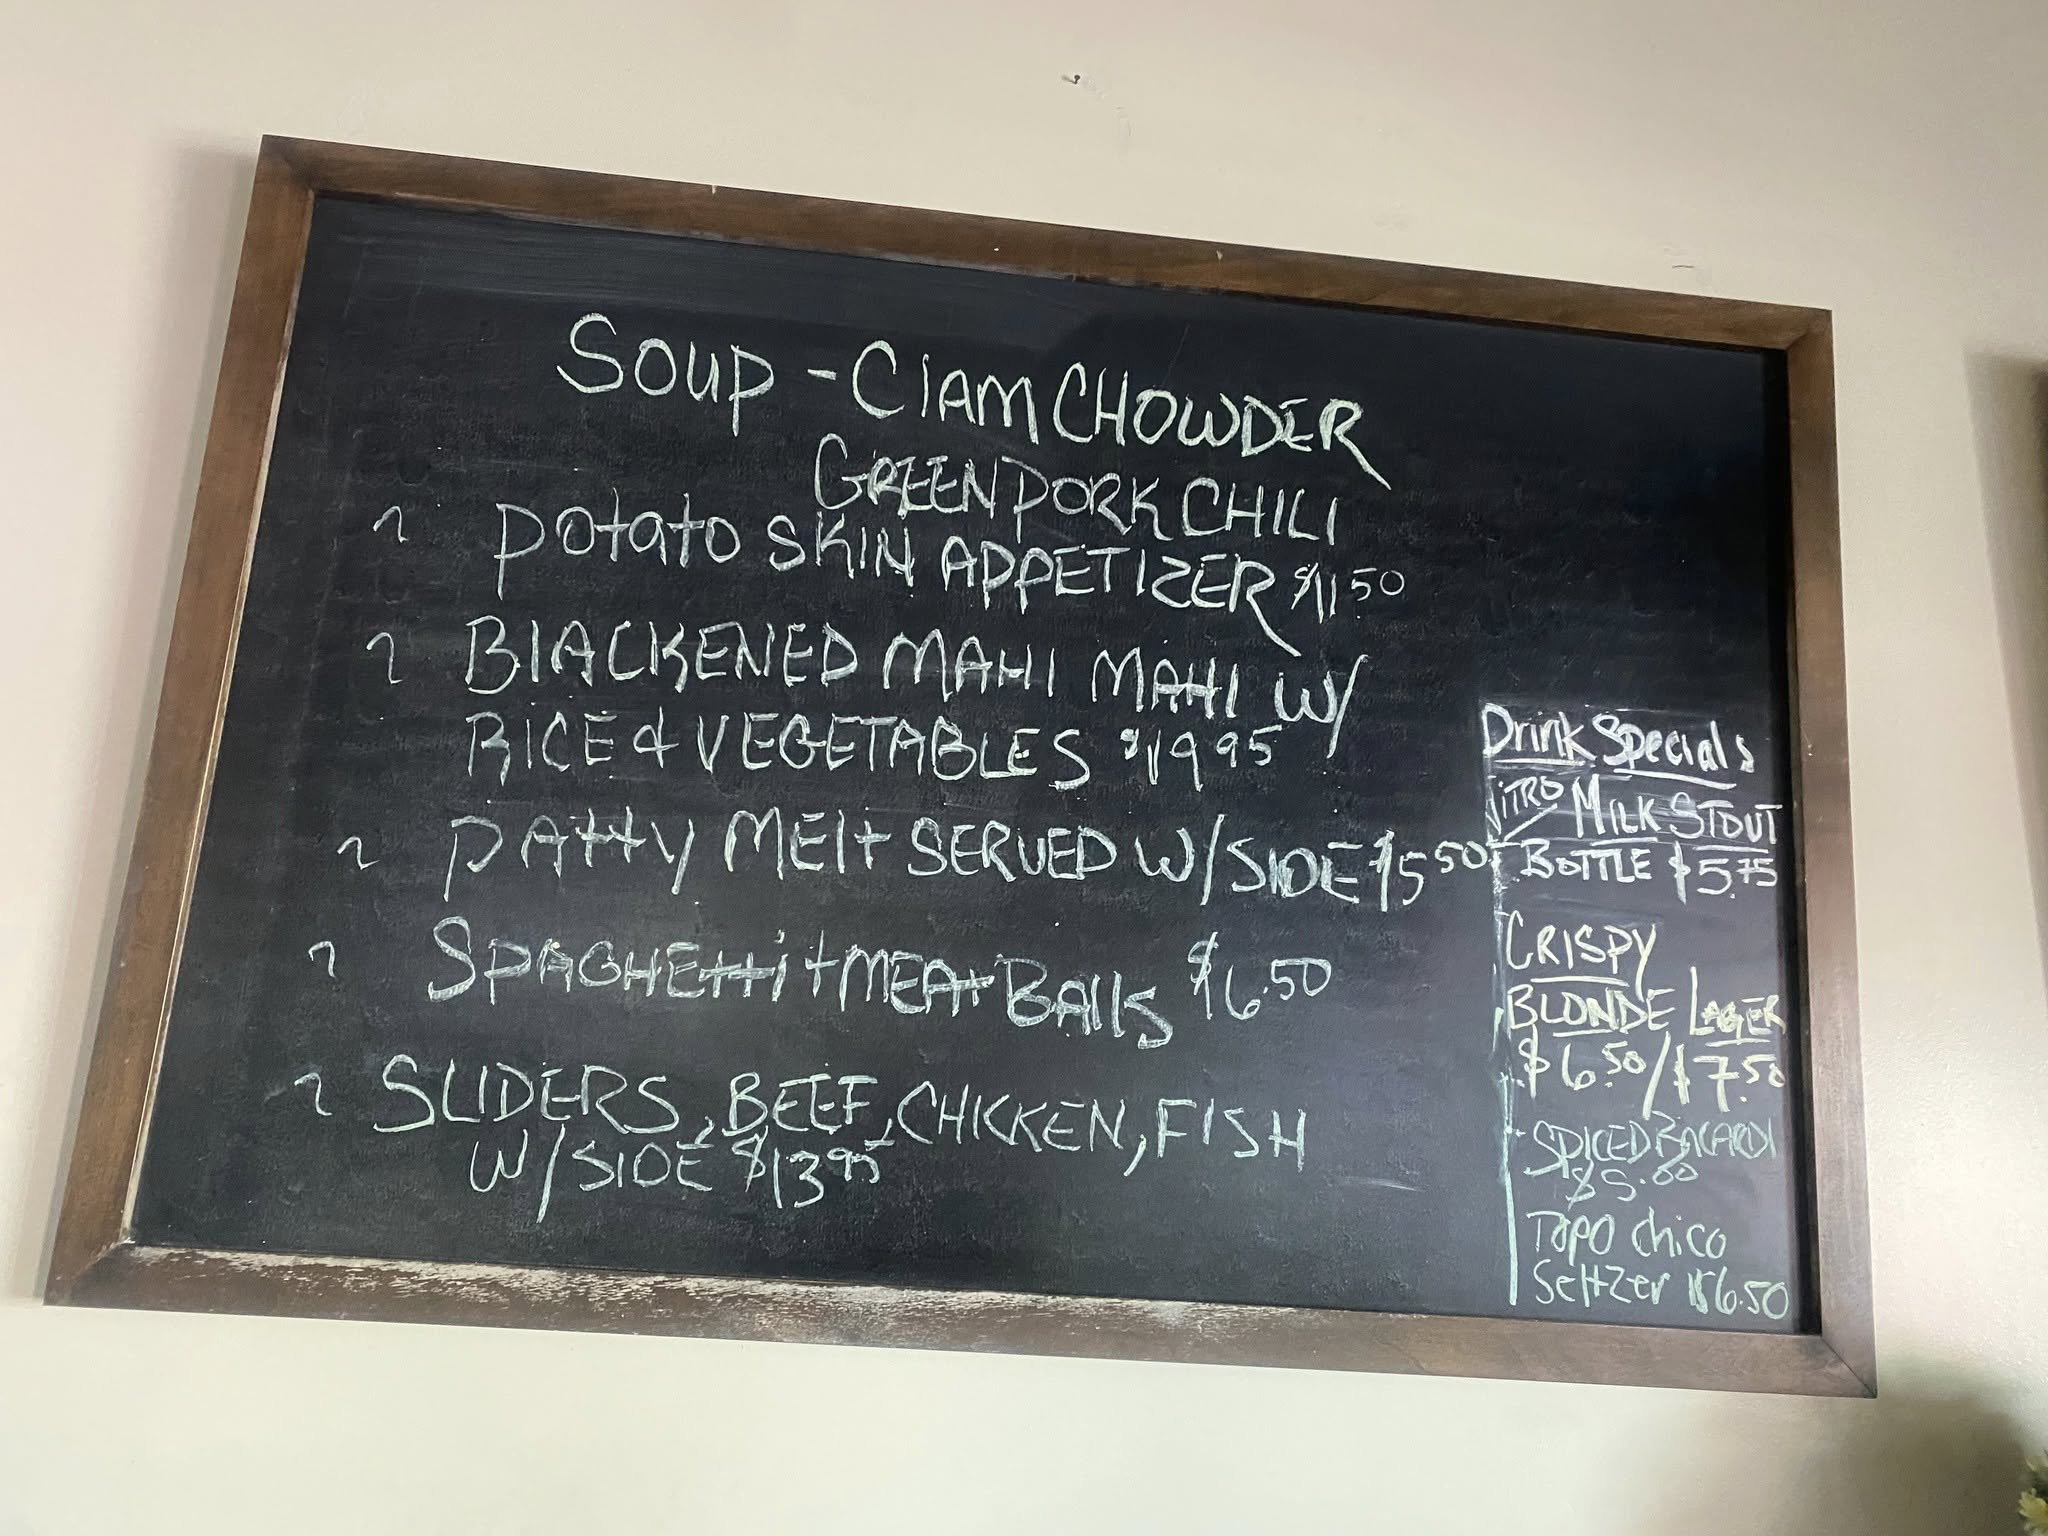 SOUP - ClAM CHOWDER
GREEN PORK CHILI
~ potato SKIN APPETIZER $11 50
~ BlACKENED MAHI MAHI W/
RICE & VEGETABLES $19 95
~ pAtty MElt SERVED W/SIDE $5 50
~ SPAGHEtti + MEAt BAllS $6.50
~ SLIDERS, BEEF, CHICKEN, FISH
W/SIDE $13 95
Drink Specials
NITRO MILK STOUT
BOTTLE $5.75
CRISPY
BLONDE LAGER
$6.50/$7.50
SPICED BACARDI
$5.00
Topo Chico
Seltzer $6.50